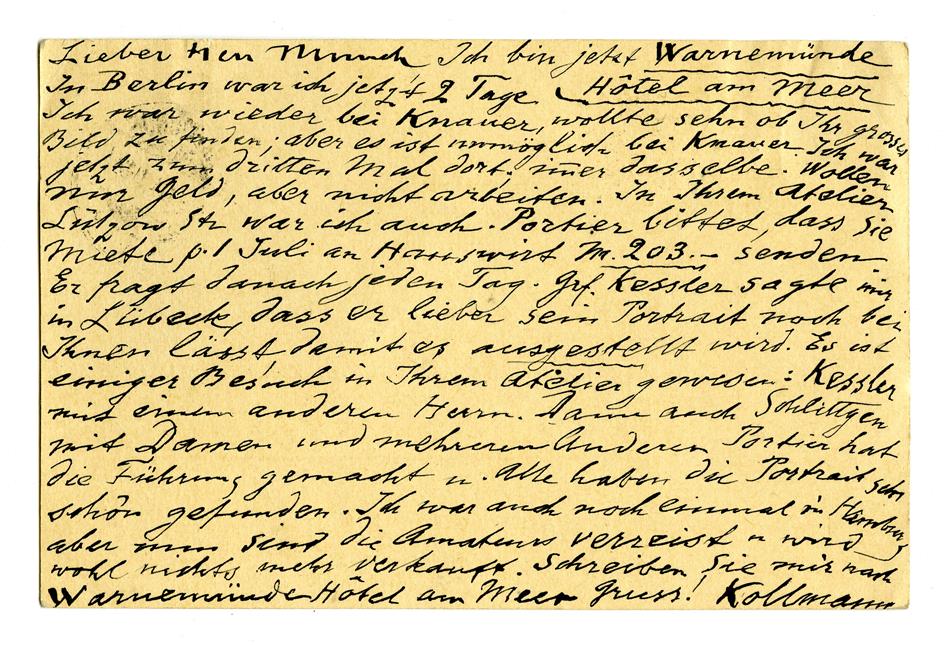 Lieber Herr Munch Ich bin jetzt Warnemünde
In Berlin war ich jetzt 2 Tage Hôtel am Meer
Ich war wieder bei Knauer, wollte sehn ob Ihr grosses
Bild zu finden; aber es ist unmöglich bei Knauer. Ich war
jetzt zum dritten Mal dort. im̄er dasselbe. Wollen
nur Geld, aber nicht arbeiten. In Ihrem Atelier
Lützow Str war ich auch. Portier bittet, dass Sie
Miete p. 1 Juli an Hauswirt M. 203.- senden
Er fragt danach jeden Tag. Grf. Kessler sagte mir
in Lübeck, dass er lieber sein Portrait noch bei
Ihnen lässt, damit es ausgestellt wird. Es ist
einiger Besuch in Ihrem Atelier gewesen: Kessler
mit einem anderen Herrn. Dann auch Schlittgen
mit Damen und mehreren Anderen Portier hat
die Führung gemacht u. Alle haben die Portrait sehr
schön gefunden. Ich war auch noch einmal in Hamburg
aber nun sind die Amateurs verreist u wird
wohl nichts mehr verkauft. Schreiben Sie mir nach
Warnemünde Hôtel am Meer Gruss! Kollmann